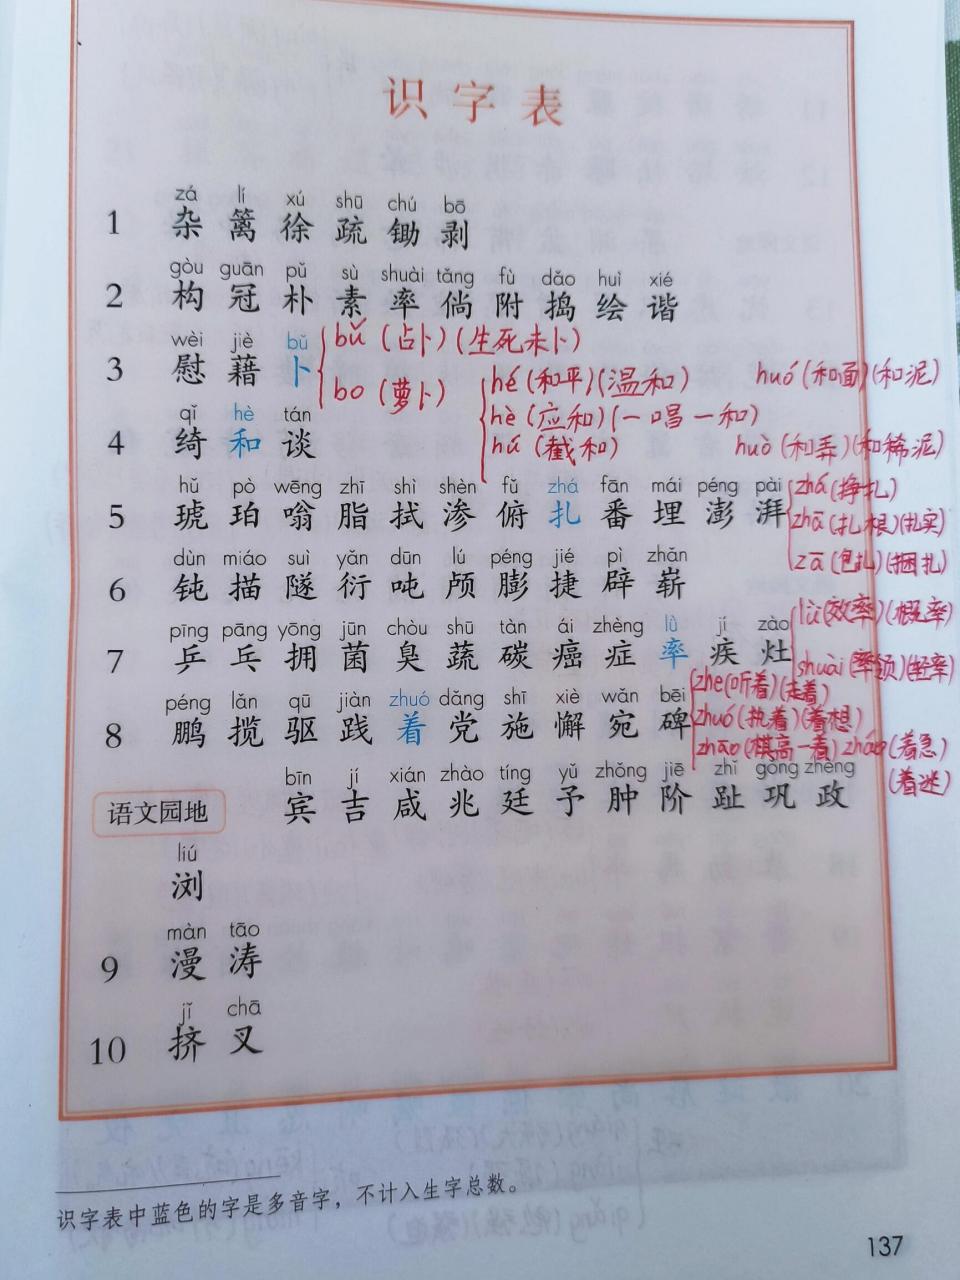 识字表
zá lí xú shū chú bō
1 杂 篱 徐 疏 锄 剥
gòu guān pǔ sù shuài tǎng fù dǎo huì xié
2 构 冠 朴 素 率 倘 附 捣 绘 谐
wèi jiè bǔ
3 慰 藉 卜
bǔ (占卜)(生死未卜)
bo (萝卜)
qǐ hè tán
4 绮 和 谈
hé (和平)(温和) huó (和面)(和泥)
hè (应和)(一唱一和)
hú (截和) huò (和弄)(和稀泥)
hǔ pò wēng zhī shì shèn fǔ zhá fān mái péng pài
5 琥 珀 嗡 脂 拭 渗 俯 扎 番 埋 澎 湃
zhá (挣扎)
zhā (扎根)(扎实)
zā (包扎)(捆扎)
dùn miáo suì yǎn dūn lú péng jié pì zhǎn
6 钝 描 隧 衍 吨 颅 膨 捷 辟 崭
pīng pāng yōng jūn chòu shū tàn ái zhèng lǜ jí zào
7 乒 乓 拥 菌 臭 蔬 碳 癌 症 率 疾 灶
lǜ (效率)(概率)
shuài (率领)(轻率)
péng lǎn qū jiàn zhuó dǎng shī xiè wǎn bēi
8 鹏 揽 驱 践 着 党 施 懈 宛 碑
zhe (听着)(走着)
zhuó (执着)(着想)
zhāo (棋高一着) zháo (着急)
(着迷)
bīn jí xián zhào tíng yǔ zhǒng jiē zhǐ gǒng zhèng
语文园地 宾 吉 咸 兆 廷 予 肿 阶 趾 巩 政
liú
浏
màn tāo
9 漫 涛
jǐ chā
10 挤 叉
识字表中蓝色的字是多音字，不计入生字总数。
137